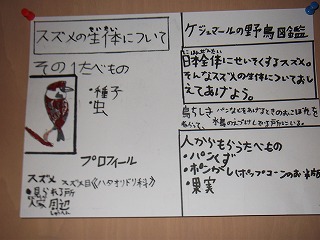 スズメの生体について
せいたい
その1たべもの
・種子
・虫
プロフィール
スズメ スズメ目《ハタオリドリ科》
・見られる所
人家周辺
ケジュマールの野鳥図鑑
日本全体にせいそくするスズメ。
そんなスズメの生体についておし
えてあげよう。
人からもらうたべもの
・パンくず
・ポンがし(ポップコーンのお米版)
・果実